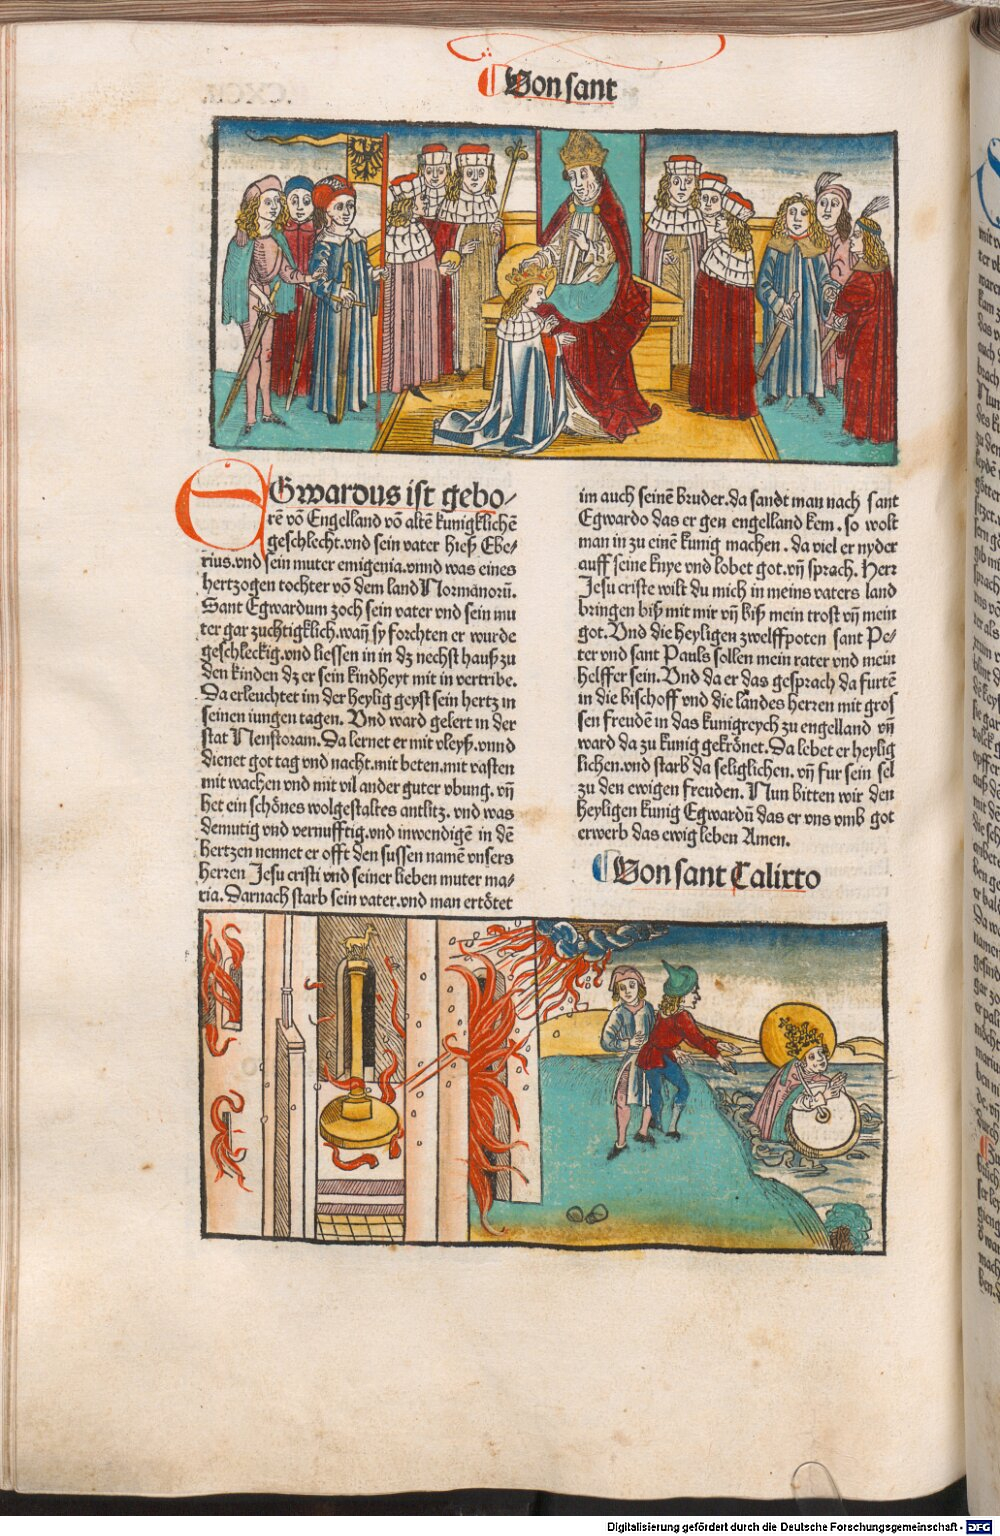 Von sant
EGwardus ist gebo⸗
rē vō Engelland vō altē kunigklichē
geschlecht.vnd sein vater hieß Ebe⸗
rius.vnd sein muter emigenia.vnnd was eines
hertzogen tochter vō dem land Normanorū.
Sant Egwardum zoch sein vater vnd sein mu
ter gar zuchtigklich.wañ sy forchten er wurde
geschleckig.vnd liessen in in dz nechst hauß zu
den kinden dz er sein kindheyt mit in vertribe.
Da erleuchtet im der heylig geyst sein hertz in
seinen iungen tagen. Vnd ward gelert in der
stat Nenstoram.Da lernet er mit vleyß.vnnd
dienet got tag vnd nacht.mit beten.mit vasten
mit wachen vnd mit vil ander guter vbung.vñ
het ein schönes wolgestaltes antlitz.vnd was
demutig vnd vernufftig.vnd inwendigē in dē
hertzen nennet er offt den sussen namē vnsers
herren Jesu cristi vnd seiner lieben muter ma⸗
ria.Darnach starb sein vater.vnd man ertötet
im auch seinē bruder.da sandt man nach sant
Egwardo das er gen engelland kem.so wolt
man in zu einē kunig machen.da viel er nyder
auff seine knye vnd lobet got.vñ sprach.Herr
Jesu criste wilt du mich in meins vaters land
bringen biß mit mir vñ biß mein trost vñ mein
got.Vnd die heyligen zwelffpoten sant Pe⸗
ter vnd sant Pauls sollen mein rater vnd mein
helffer sein.Vnd da er das gesprach da furtē
in die bischoff vnd die landes herren mit gros
sen freudē in das kunigreych zu engelland vñ
ward da zu kunig gekrönet.Da lebet er heylig
lichen.vnd starb da seliglichen.vñ fur sein sel
zu den ewigen freuden. Nun bitten wir den
heyligen kunig Egwardū das er vns vmb got
erwerb das ewig leben Amen.
Von sant Calixto
Digitalisierung gefördert durch die Deutsche Forschungsgemeinschaft - DFG